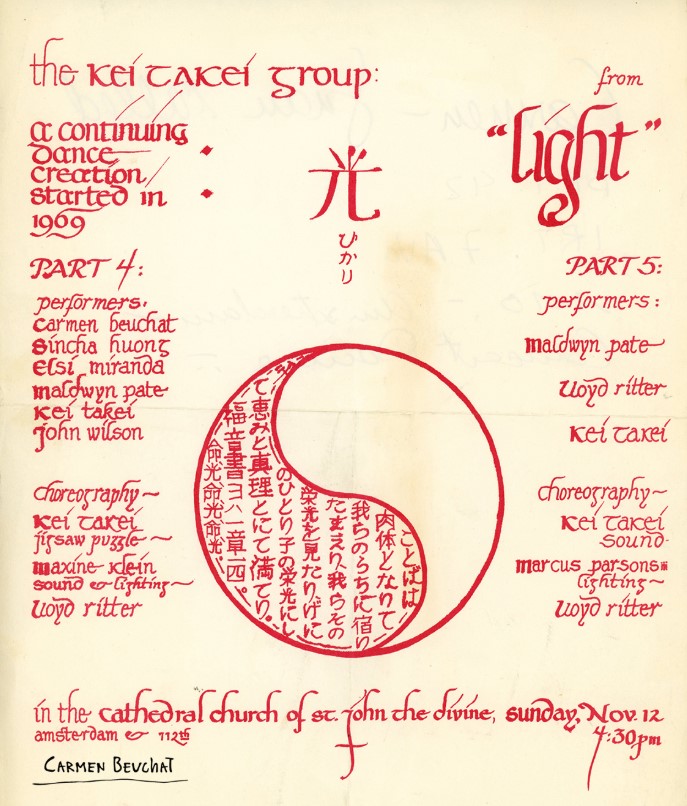 the kei takei group:
a continuing
dance
creation
started in
1969
from
"light"
光
ひかり
PART 4:
performers:
carmen beuchat
sincha huong
elsi miranda
maldwyn pate
kei takei
john wilson
choreography~
kei takei
jigsaw puzzle~
maxine klein
sound & lighting~
lloyd ritter
PART 5:
performers:
maldwyn pate
lloyd ritter
kei takei
choreography~
kei takei
sound-
marcus parsons III
lighting~
lloyd ritter
ことばは
肉体となりて
我らのうちに宿り
たまえり、我らその
栄光を見たり、げに
のひとり子の栄光にし
て恵みと真理とにて満てり。
福音書ヨハ一章一四。
命光命光命光
in the cathedral church of st. john the divine, sunday, Nov. 12
amsterdam & 112th
4:30pm
CARMEN BEUCHAT